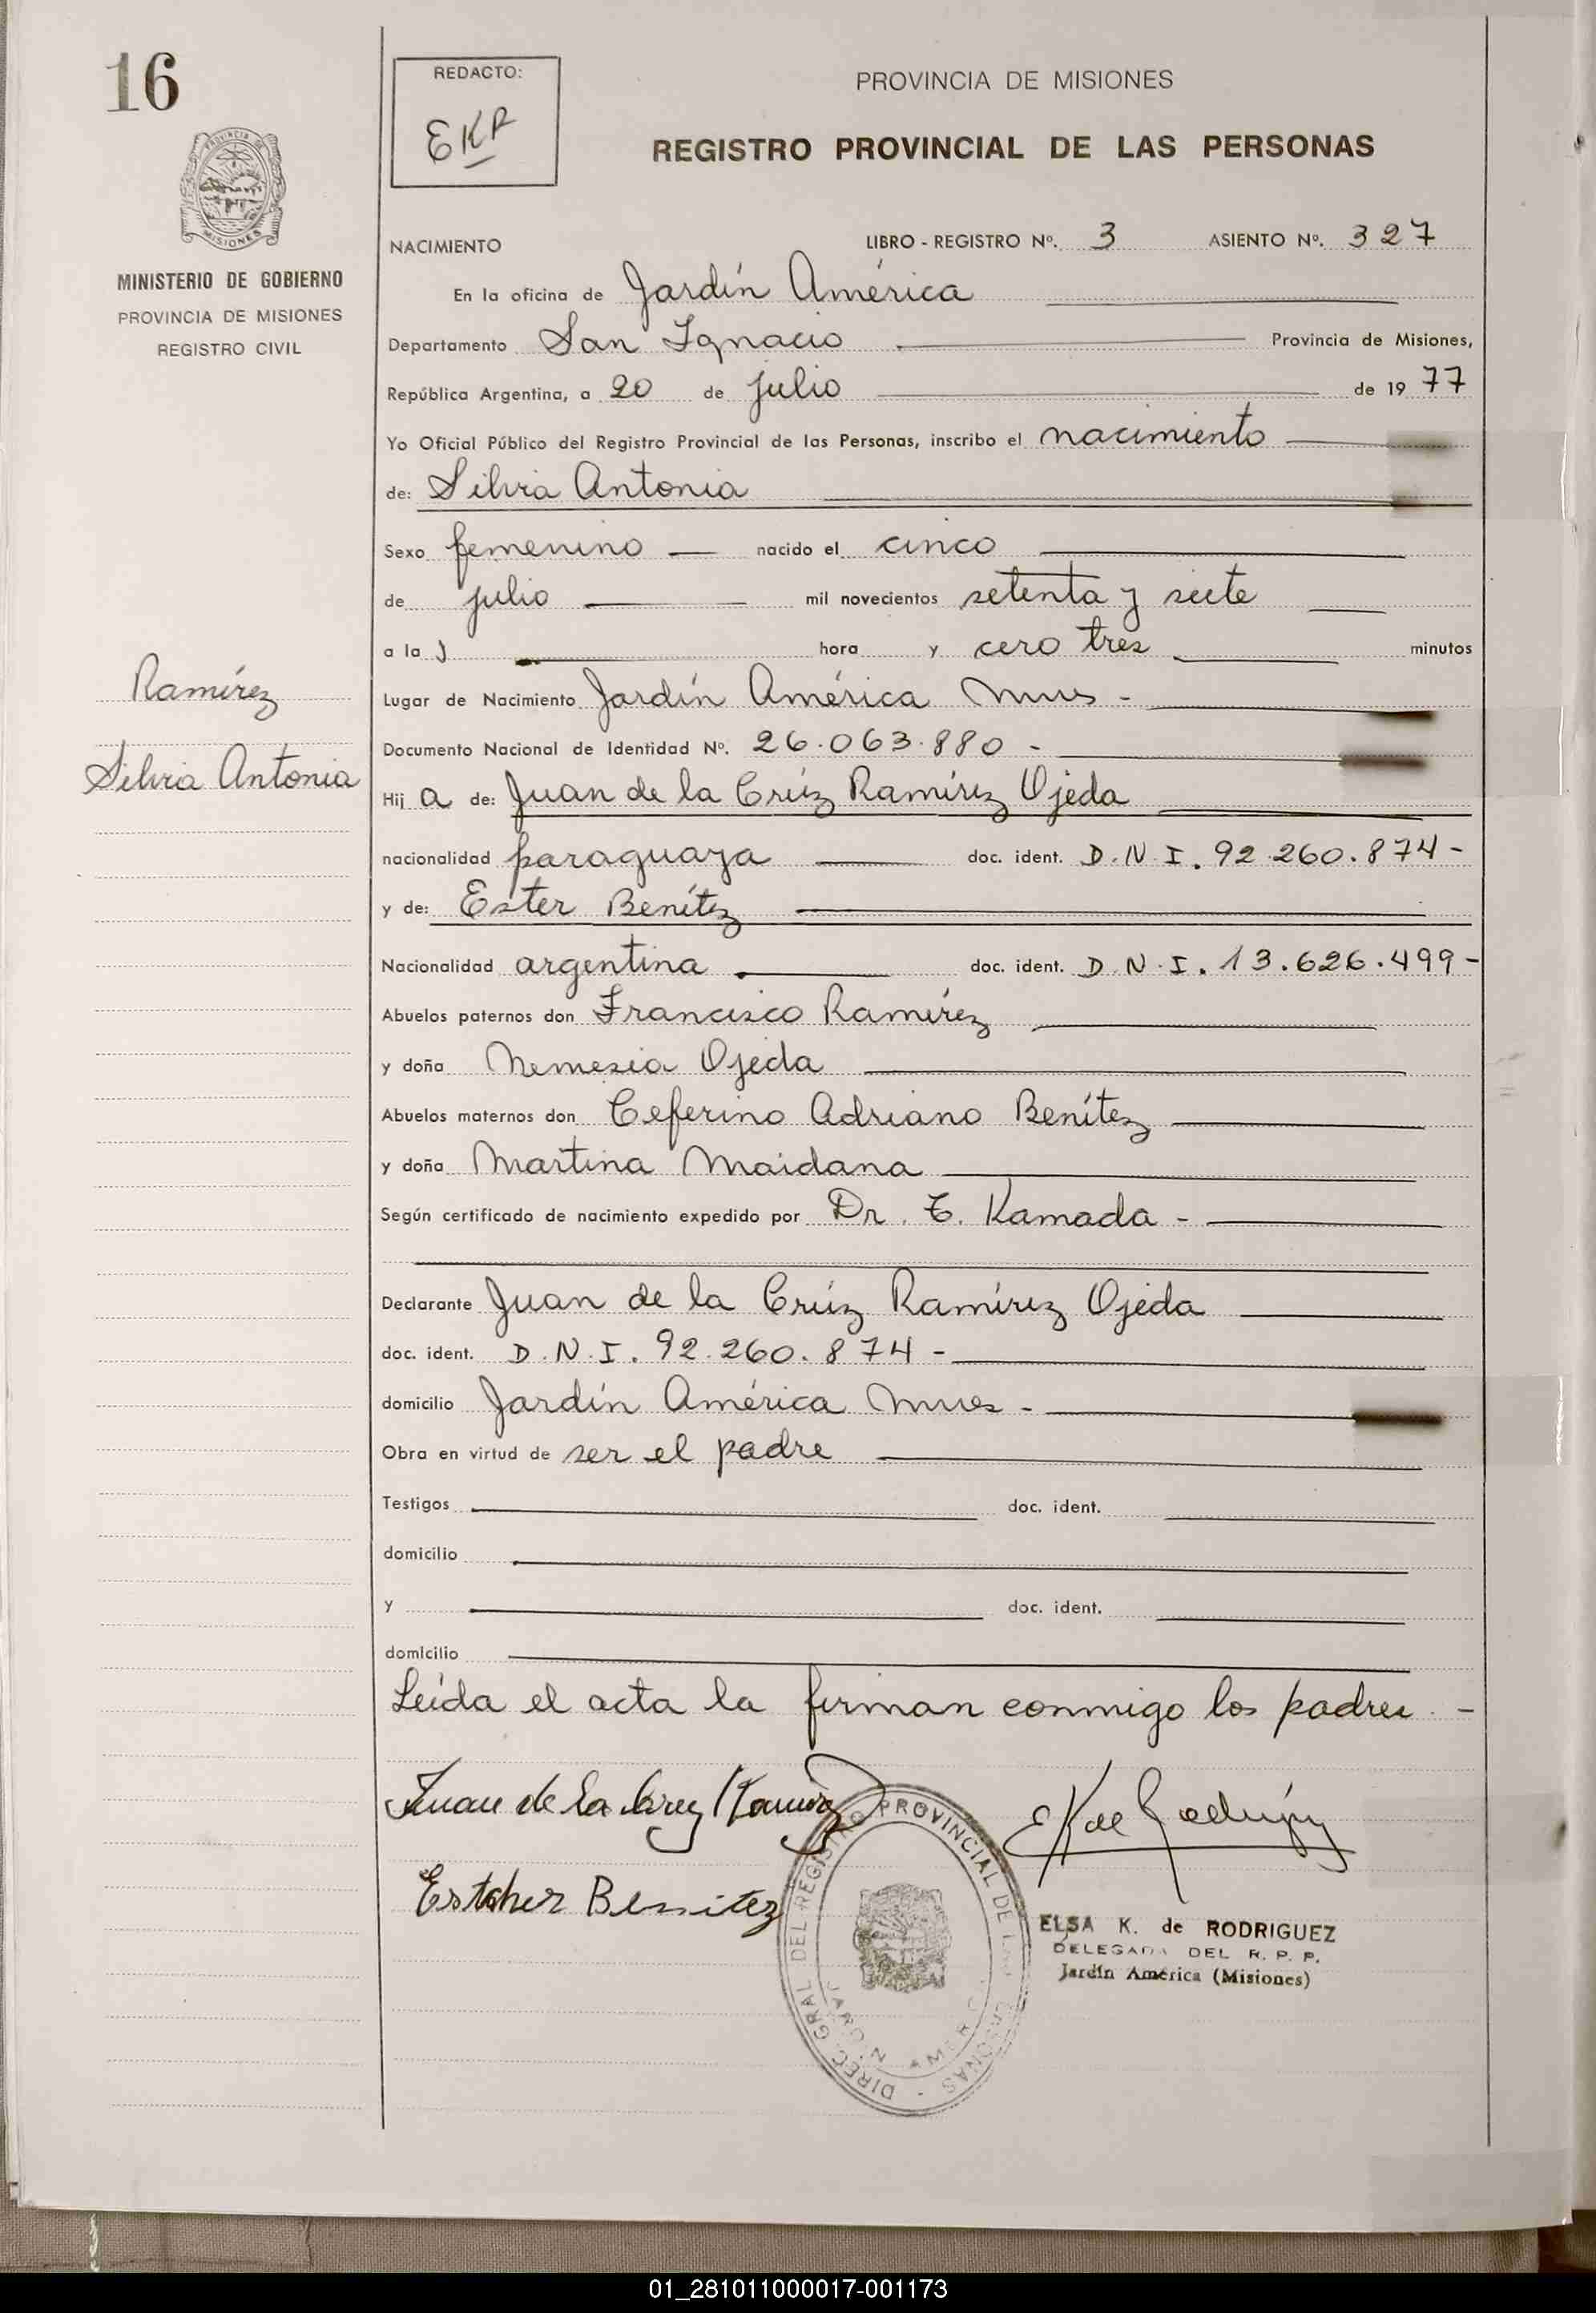 16
REDACTO:
EKR
PROVINCIA DE MISIONES
REGISTRO PROVINCIAL DE LAS PERSONAS
PROVINCIA DE
MISIONES
MINISTERIO DE GOBIERNO
PROVINCIA DE MISIONES
REGISTRO CIVIL
NACIMIENTO LIBRO - REGISTRO Nº. 3 ASIENTO Nº. 327
En la oficina de Jardín América
Departamento San Ignacio Provincia de Misiones,
República Argentina, a 20 de julio de 1977
Yo Oficial Público del Registro Provincial de las Personas, inscribo el nacimiento
de: Silvia Antonia
Sexo femenino nacido el cinco
de julio mil novecientos setenta y siete
a la hora y cero tres minutos
Ramírez
Silvia Antonia
Lugar de Nacimiento Jardín América Mnes -
Documento Nacional de Identidad Nº. 26.063.880 -
Hij a de: Juan de la Crúz Ramírez Ojeda
nacionalidad paraguaya doc. ident. D.N.I. 92.260.874 -
y de: Ester Benítez
Nacionalidad argentina doc. ident. D.N.I. 13.626.499 -
Abuelos paternos don Francisco Ramírez
y doña Nemesia Ojeda
Abuelos maternos don Ceferino Adriano Benítez
y doña Martina Maidana
Según certificado de nacimiento expedido por Dr. T. Kamada -
Declarante Juan de la Crúz Ramírez Ojeda
doc. ident. D.N.I. 92.260.874 -
domicilio Jardín América Mnes -
Obra en virtud de ser el padre
Testigos doc. ident.
domicilio
y doc. ident.
domicilio
Leída el acta la firman conmigo los padres. -
Juan de la Cruz Ramirez
EK de Rodriguez
Esther Benitez
DIREC. GRAL DEL REGISTRO PROVINCIAL DE LAS PERSONAS -
JARDIN AMERICA
ELSA K. de RODRIGUEZ
DELEGADA DEL R. P. P.
Jardín América (Misiones)
01_281011000017-001173